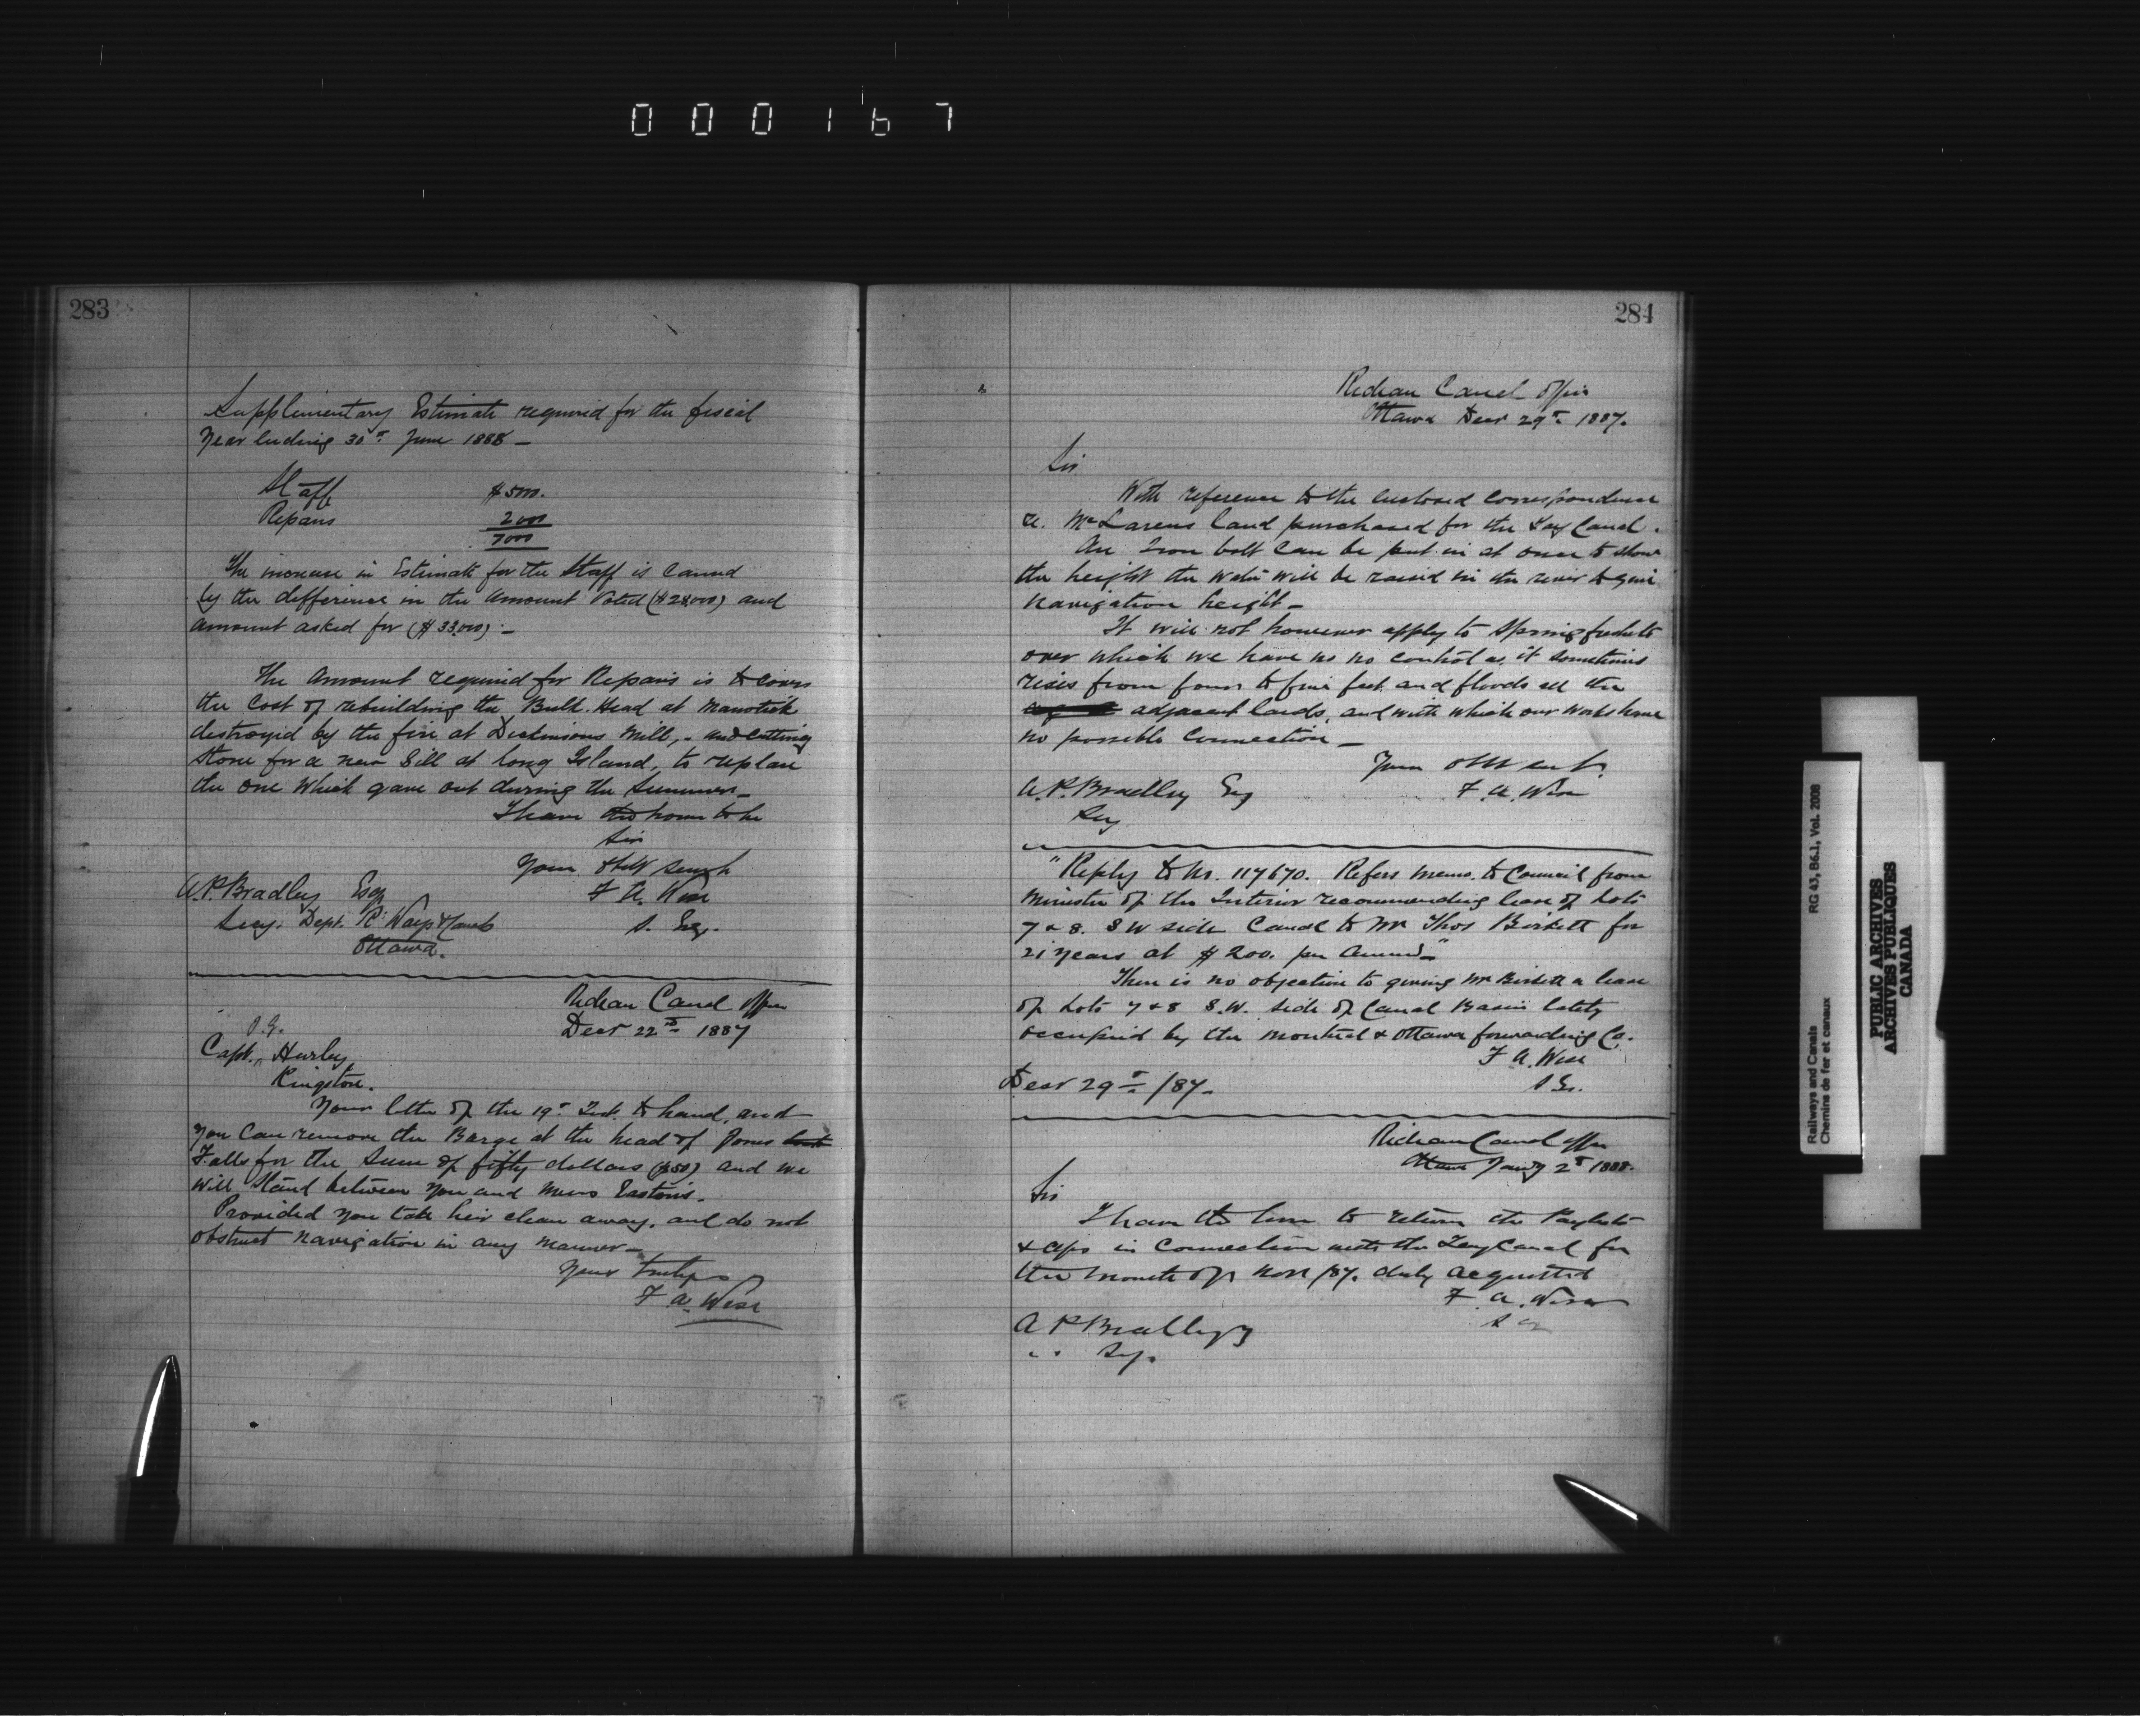 000167
283
Supplementary Estimate required for the fiscal
Year Ending 30th June 1888 —
Staff $5000.
Repairs 2000
7000
The increase in Estimate for the Staff is caused
by the difference in the Amount Voted ($28,000) and
Amount asked for ($33,000). —
The Amount required for Repairs is to cover
the Cost of rebuilding the Bulk Head at Manotick
destroyed by the fire at Dickinsons Mill, - and cutting
Stone for a new Sill at Long Island, to replace
the one which gave out during the Summer —
I have the honor to be
Sir
Your Obdt Servt
A. P. Bradley Esq F A. Wise
Secy. Dept. R. Ways & Canals S. Eng.
Ottawa.
Rideau Canal Office
Decr 22nd 1887
Capt. Hurley
Kingston.
Your letter of the 19th Inst. to hand, and
you can remove the Barge at the head of Jones
Falls for the Sum of fifty dollars ($50) and we
will Stand between you and Messrs Easton's.
Provided you take her clean away, and do not
obstruct navigation in any manner —
Yours truly
F A. Wise
284
Rideau Canal Office
Ottawa Decr 29th 1887.
Sir
With reference to the enclosed correspondence
re. McLarens land purchased for the Tay Canal.
An Iron bolt can be put in at once to show
the height the water will be raised in the river to give
Navigation height —
It will not however apply to Spring freshets
over which we have no no control as it sometimes
rises from four to five feet and floods all the
adjacent lands, and with which our works have
no possible Connection —
Your Obt Servt.
A. P. Bradley Esq F. A. Wise
Secy
"Reply to No. 117670. Refers Memo. to Council from
Minister of the Interior recommending lease of Lots
7 & 8. S W side Canal to Mr Thos Birkett for
21 years at $200. per Annum"
There is no objection to giving Mr Birkett a lease
of Lots 7 & 8 S.W. side of Canal Basin lately
occupied by the Montreal & Ottawa forwarding Co.
F A. Wise
Decr 29th /87. S En.
Rideau Canal Office
Ottawa Jany 2nd 1888.
Sir
I have the honor to return the Paylists
& a/cs in Connection with the Tay Canal for
the month of Novr /87. duly acquitted
F. A. Wise
A P Bradley
Secy.
Railways and Canals RG 43, B6.1, Vol. 2008
Chemins de fer et canaux
PUBLIC ARCHIVES
ARCHIVES PUBLIQUES
CANADA